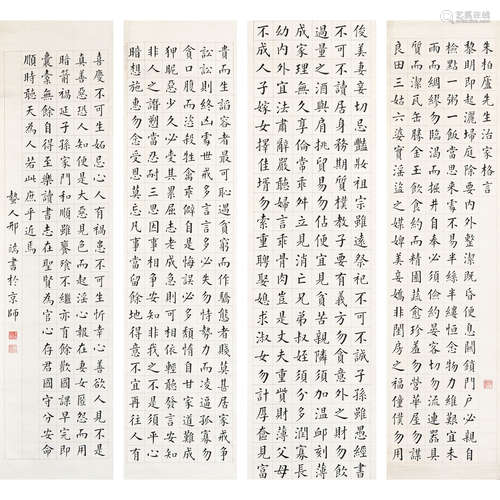 朱柏廬先生治家格言
黎明即起灑掃庭除要內外整潔既昏便息關鎖門户必親自
檢點一粥一飯當思來處不易半絲半縷恒念物力維艱宜未
雨而綢繆勿臨渴而掘井自奉必須儉約宴客切勿流連器具
質而潔瓦缶勝金玉飲食約而精園蔬愈珍饈勿營華屋勿謀
良田三姑六婆實淫盜之媒婢美妾嬌非閨房之福僮僕勿用
俊美妻妾切忌艷妝祖宗雖遠祭祀不可不誠子孫雖愚經書
不可不讀居身務期質樸教子要有義方勿貪意外之財勿飲
過量之酒與肩挑貿易勿佔便宜見貧苦親鄰須加溫卹刻薄
成家理無久享倫常乖舛立見消亡兄弟叔姪須分多潤寡長
幼內外宜法肅辭嚴聽婦言乖骨肉豈是丈夫重貲財薄父母
不成人子嫁女擇佳婿勿索重聘娶媳求淑女勿計厚奩見富
貴而生諂容者最可恥遇貧窮而作驕態者賤莫甚居家戒爭
訟訟則終凶處世戒多言言多必失勿恃勢力而凌逼孤寡勿
貪口腹而恣殺牲禽乖僻自是悔誤必多頹惰自甘家道難成
狎昵惡少久必受其累屈志老成急則可相依輕聽發言安知
非人之譖愬當忍耐三思因事相爭安知非我之不是須平心
暗想施惠勿念受恩莫忘凡事當留餘地得意不宜再往人有
喜慶不可生妒忌心人有禍患不可生忻幸心善欲人見不是
真善惡恐人知便是大惡見色而起淫心報在妻女匿怨而用
暗箭禍延子孫家門和順雖饔飧不繼亦有餘歡國課早完即
囊橐無餘自得至樂讀書志在聖賢為官心存君國守分安命
順時聽天為人若此庶乎近焉
蟄人邢端書於京師